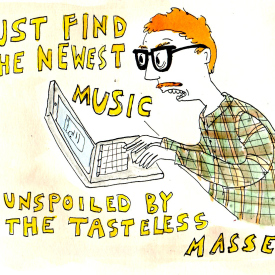 UST FIND
HE NEWEST
MUSIC
UNSPOILED BY
THE TASTELESS
MASSE